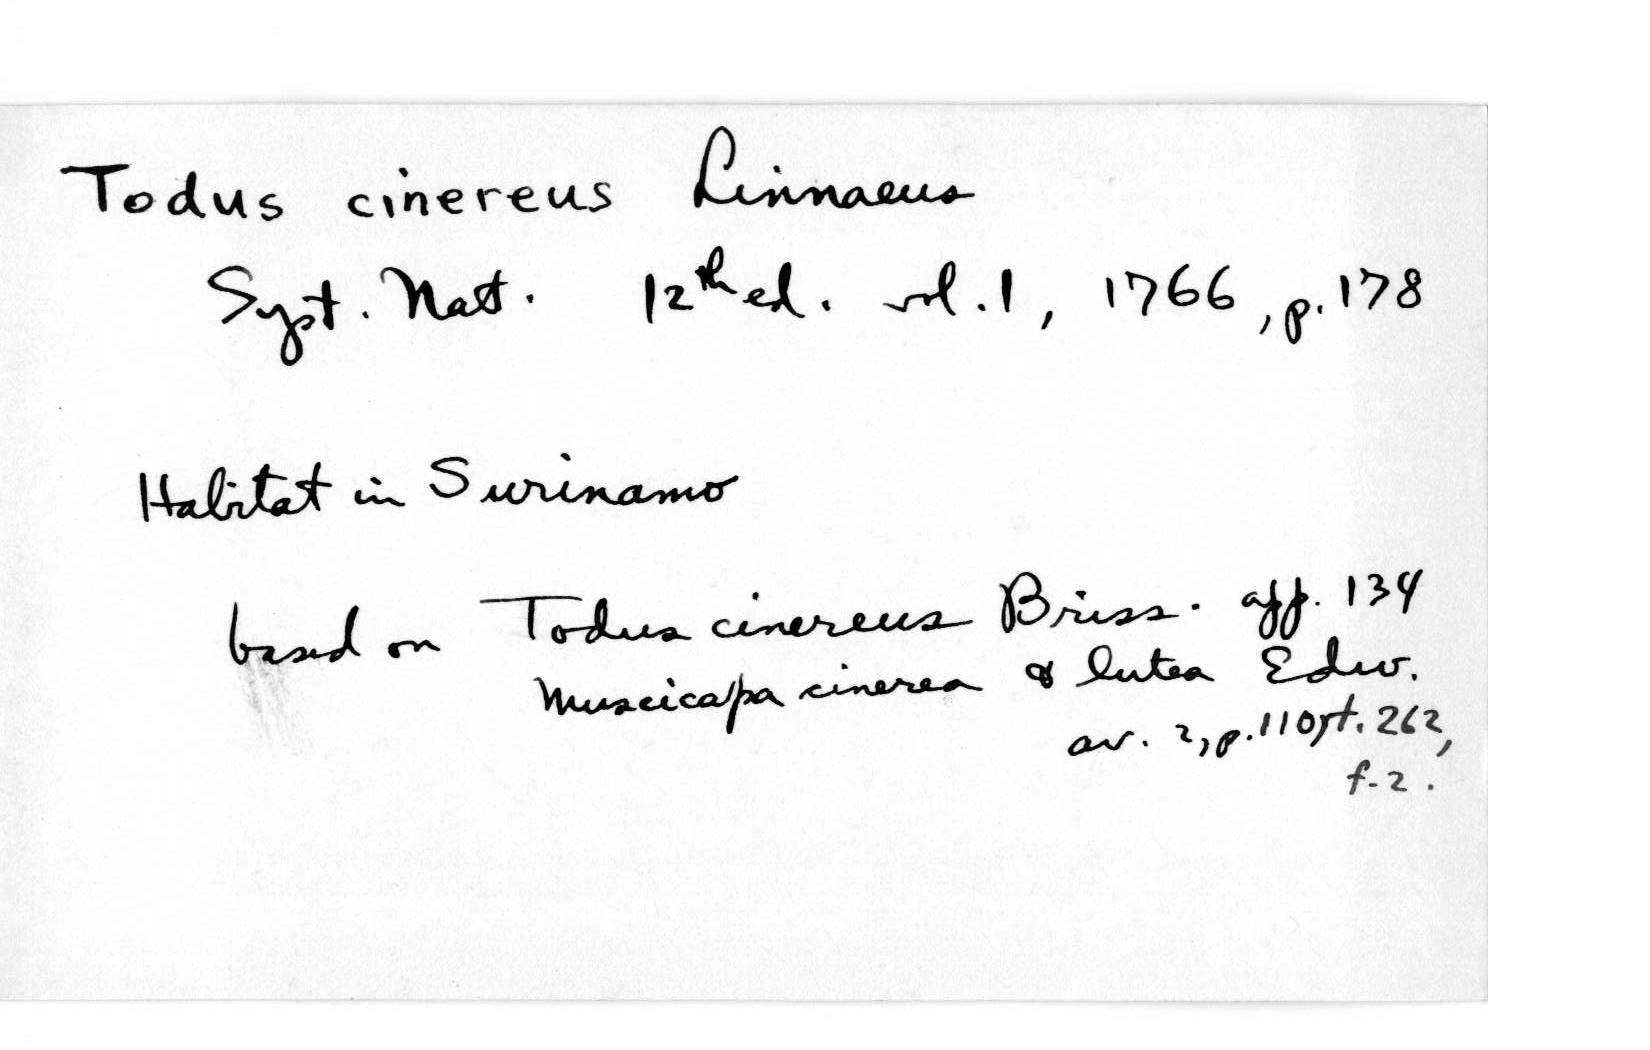 Todus cinereus Linnaeus
Syst. Nat. 12th ed. vol. 1, 1766, p. 178
Habitat in Surinamo
based on Todus cinereus Briss. app. 134
Muscicapa cinerea & lutea Edw.
av. 2, p. 110, t. 262,
f. 2.